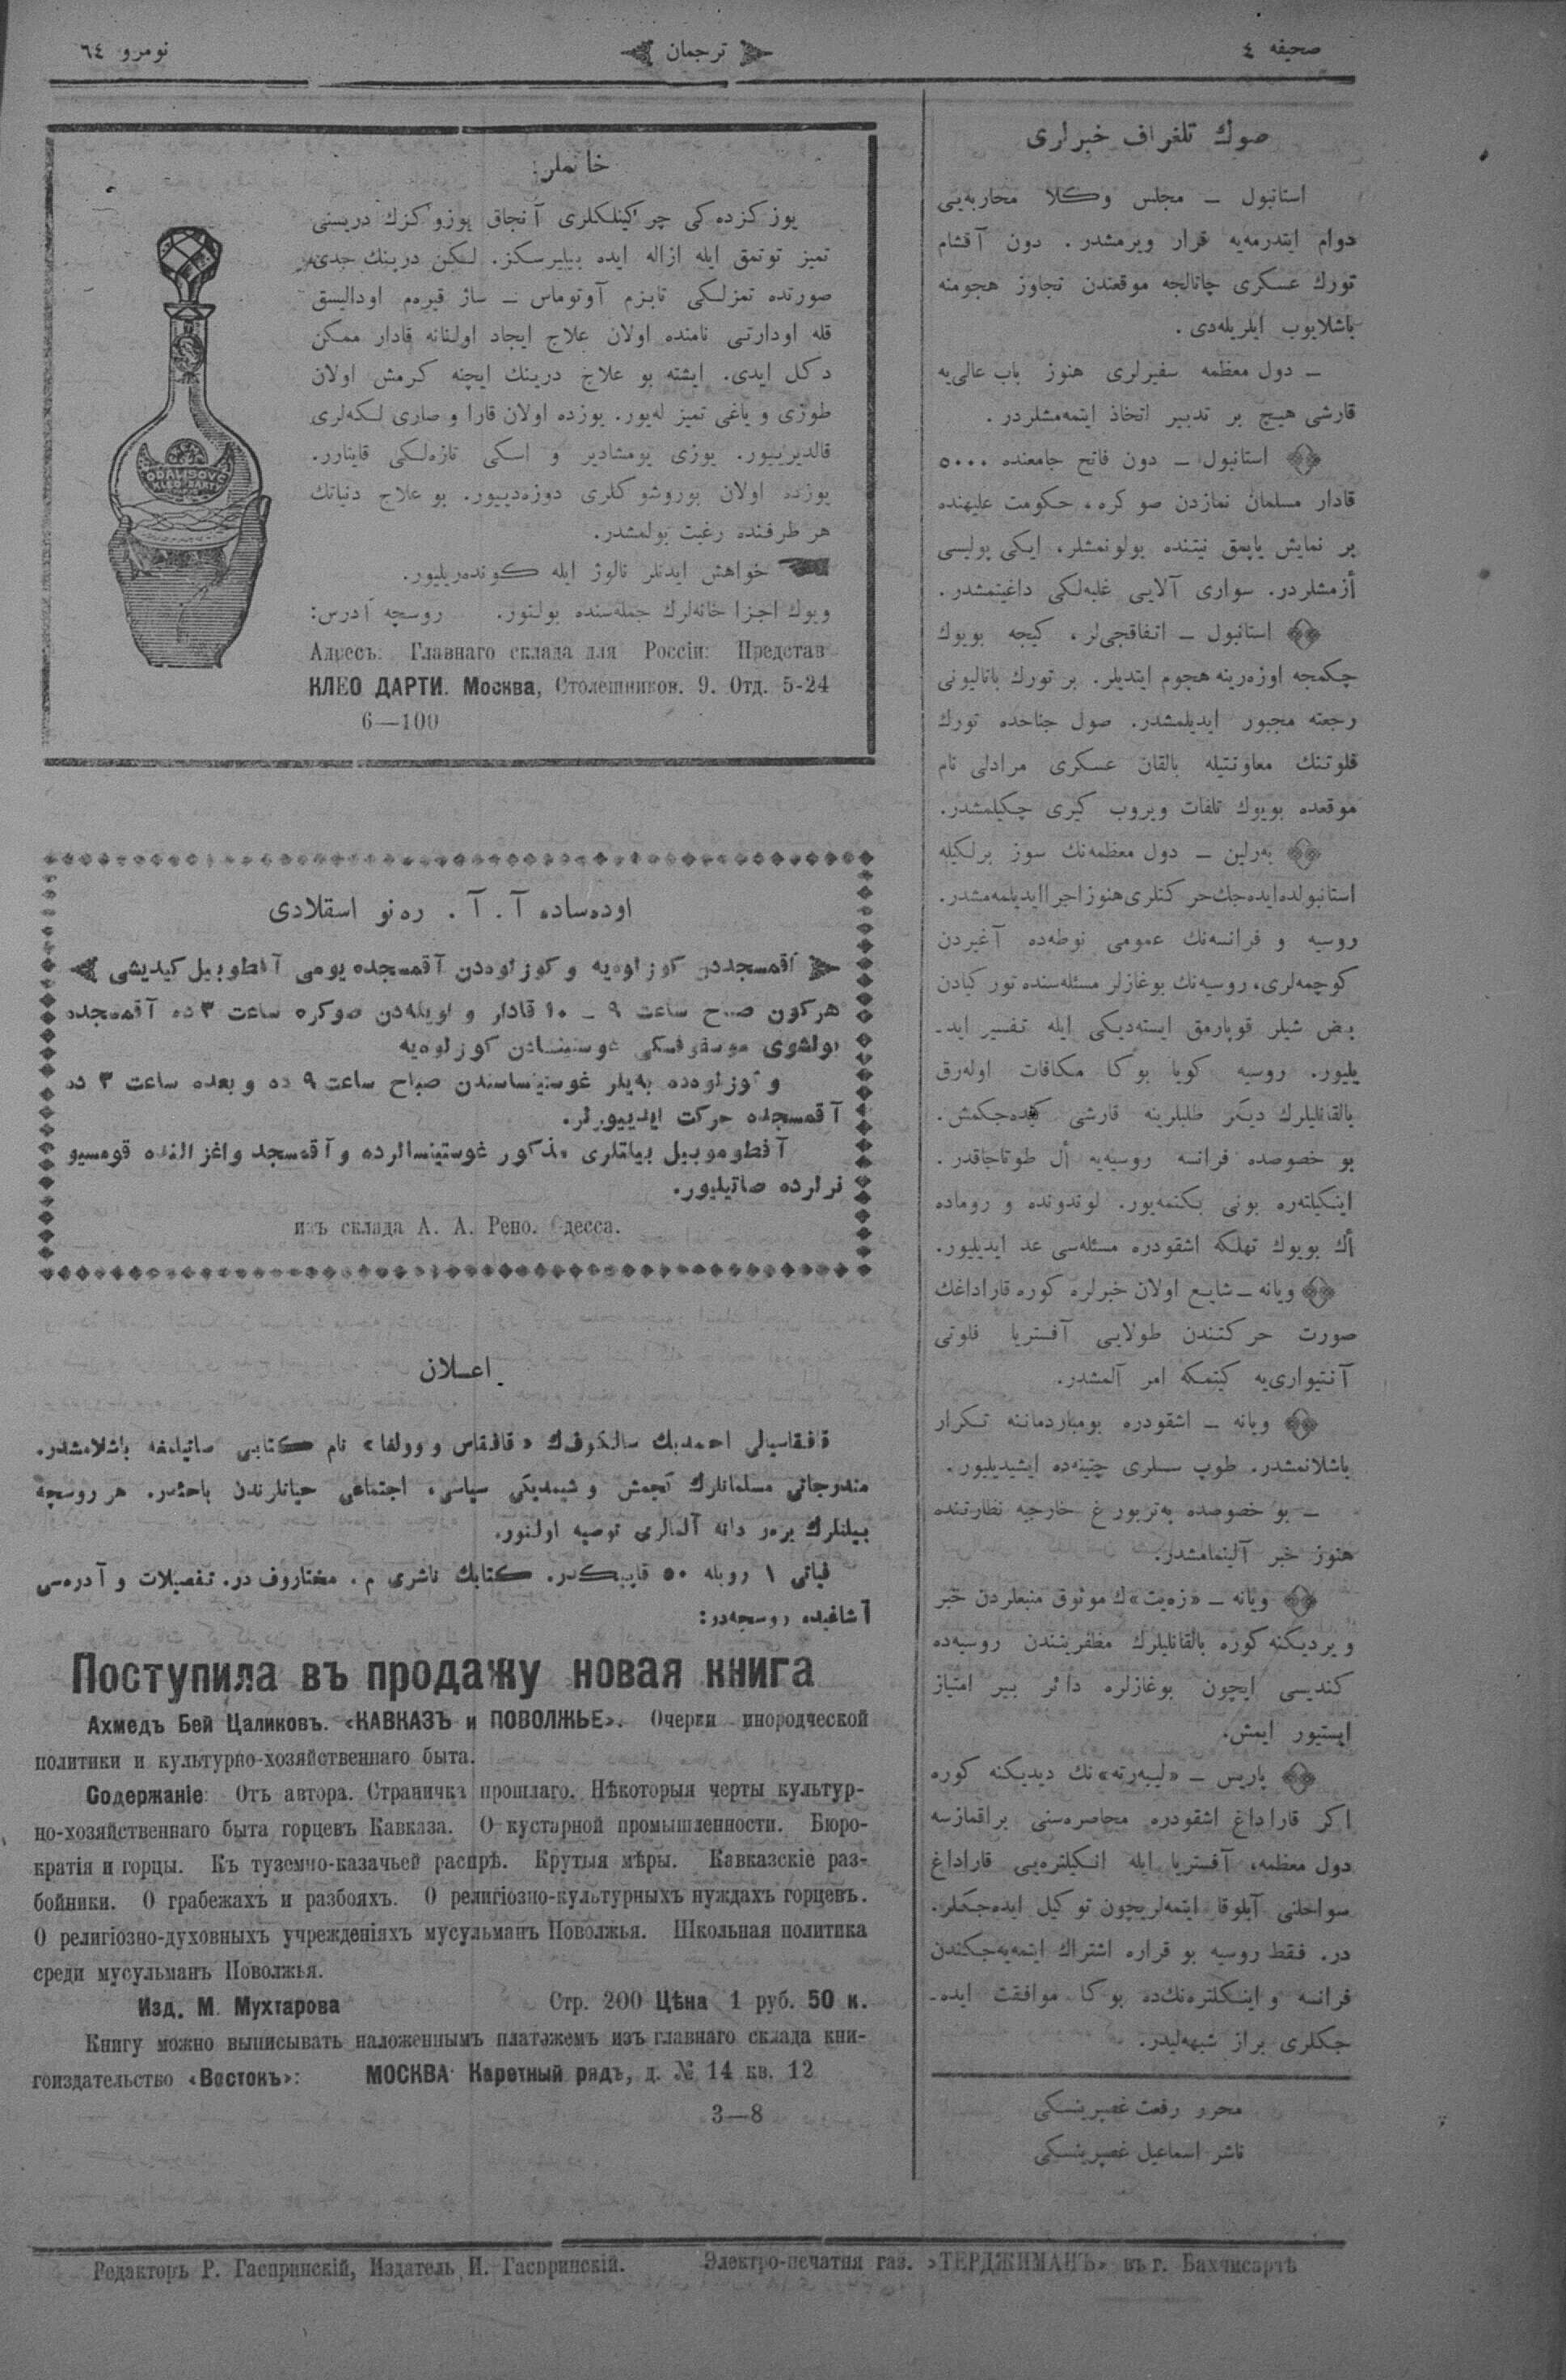 صحيفه ٤
ترجمان
نومرو ٦٤
صوك تلغراف خبرلری
استانبول ــ مجلس وكلا محاربه‌یی
دوام ایتدرمه‌یه قرار ویرمشدر. دون آقشام
تورك عسكری چاتالجه موقعندن تجاوز هجومنه
باشلایوب ایلریله‌دی.
ــ دول معظمه سفیرلری هنوز باب عالی‌یه
قارشی هیچ بر تدبیر اتخاذ ایتمه‌مشلردر.
استانبول ــ دون فاتح جامعنده ٥٠٠٠
قادار مسلمان نمازدن صوكره، حكومت علیهنده
بر نمایش یاپمق نیتنده بولونمشلر، ایكی پولیسی
أزمشلردر. سواری آلایی غلبه‌لكی داغیتمشدر.
استانبول ــ اتفاقجی‌لر، كیجه بویوك
چكمجه اوزه‌رینه هجوم ایتدیلر. بر تورك باتالیونی
رجعته مجبور ایدیلمشدر. صول جناحده تورك
فلوتنك معاونتیله بالقان عسكری مرادلی نام
موقعده بویوك تلفات ویروب كیری چكیلمشدر.
به‌رلین ــ دول معظمه‌نك سوز برلكیله
استانبولده ایده‌جك حركتلری هنوز اجرا ایدیلمه‌مشدر.
روسیه و فرانسه‌نك عمومی نوطه‌ده آغیردن
كوچمه‌لری، روسیه‌نك بوغازلر مسئله‌سنده توركیادن
بعض شیلر قوپارمق ایسته‌دیكی ایله تفسیر ایدـ
یلیور. روسیه كویا بوكا مكافات اوله‌رق
بالقانلیلرك دیكر طلبلرینه قارشی كیده‌جكمش.
بو خصوصده فرانسه روسیه‌یه أل طوتاجاقدر.
اینكیلتەره بونی بكنمه‌یور. لوندونده و روماده
أك بویوك تهلكه اشقودره مسئله‌سی عد ایدیلیور.
ویانه ــ شایع اولان خبرلره كوره قاراداغك
صورت حركتندن طولایی آفستریا فلوتی
آنتیواری‌یه كیتمكه امر آلمشدر.
ویانه ــ اشقودره بومباردماننه تكرار
باشلانمشدر. طوپ سسلری چتینه‌ده ایشیدیلیور.
ــ بو خصوصده په‌تربورغ خارجیه نظارتنده
هنوز خبر آلینمامشدر.
ویانه ــ «زه‌یت»ك موثوق منبعلردن خبر
ویردیكنه كوره بالقانلیلرك مظفریتندن روسیه‌ده
كندیسی ایچون بوغازلره دائر بیر امتیاز
ایستیور ایمش.
پاریس ــ «لیبه‌رته»نك دیدیكنه كوره
اكر قاراداغ اشقودره محاصره‌سنی براقمازسه
دول معظمه، آفستریا ایله انكیلتره‌یی قاراداغ
سواحلنی آبلوقا ایتمه‌لریچون توكیل ایده‌جكلرـ
در. فقط روسیه بو قراره اشتراك ایتمه‌یه‌جكندن
فرانسه و اینكلتره‌نك‌ده بوكا موافقت ایده‌ـ
جكلری براز شبهه‌لیدر.
محرر رفعت غصپرینسكی
ناشر اسماعیل غصپرینسكی
خانملر:
یوزكزده‌كی چركینلكلری آنجاق یوزوكزك دریسنی
تمیز توتمق ایله ازاله ایده بیلیرسكز. لكن درینك جدی
صورتده تمزلكی تابزم آوتوماس ــ ساژ قیره‌م اودالیسق
قله اودارتی نامنده اولان علاج ایجاد اولنانه قادار ممكن
دكل ایدی. ایشته بو علاج درینك ایچنه كرمش اولان
طوزی و یاغی تمیزله‌یور. یوزده اولان قارا و صاری لكه‌لری
قالدیرییور. یوزی یومشادیر و اسكی تازه‌لكی قایتارر.
یوزده اولان بوروشوكلری دوزه‌دییور. بو علاج دنیانك
هر طرفنده رغبت بولمشدر.
خواهش ایدنلر نالوژ ایله كونده‌ریلیور.
وبوك اجزا خانه‌لرك جمله‌سنده بولنور. روسچه آدرس:
Адресъ: Главнаго склада для Россіи: Представ
КЛЕО ДАРТИ. Москва, Столешников. 9. Отд. 5-24
6—100
اوده‌ساده آ. آ. ره‌نو اسقلادی
آقمسجددن كوزلوه‌یه و كوزلوه‌دن آقمسجده یومی آفطوبیل كیدیشی
هركون صباح ساعت ٩ ــ ١٠ قادار و اویله‌دن صوكره ساعت ٣ ده آقمسجده
بولشوی موسقوفسكی غوستینسادن كوزلوه‌یه
و كوزلوه‌ده به‌یلر غوستینساسندن صباح ساعت ٩ ده و بعده ساعت ٣ ده
آقمسجده حركت ایدییورلر.
آفطوموبیل بیلتلری مذكور غوستینسالرده و آقمسجد واغزالنده قومسیو
نرلرده صاتیلیور.
изъ склада А. А. Рено. Одесса.
اعلان
قافقاسیالی احمدبك سالكوفك «قافقاس و وولغا» نام كتابی صاتیلمغه باشلامشدر.
مندرجاتی مسلمانلرك كچمش و شیمدیكی سیاسی، اجتماعی حیاتلرندن باحثدر. هر روسچه
بیلنلرك برەر دانه آلمالری توصیه اولنور.
فیاتی ١ روبله ٥٠ قاپیكدر. كتابك ناشری م. مختاروف در. تفصیلات و آدره‌سی
آشاغیده روسچه‌در:
Поступила въ продажу новая книга
Ахмедъ Бей Цаликовъ. «КАВКАЗЪ и ПОВОЛЖЬЕ». Очерки инородческой
политики и культурно-хозяйственнаго быта.
Содержаніе: Отъ автора. Страничка прошлаго. Нѣкоторыя черты культур-
но-хозяйственнаго быта горцевъ Кавказа. О кустарной промышленности. Бюро-
кратія и горцы. Къ туземно-казачьей распрѣ. Крутыя мѣры. Кавказскіе раз-
бойники. О грабежахъ и разбояхъ. О религіозно-культурныхъ нуждахъ горцевъ.
О религіозно-духовныхъ учрежденіяхъ мусульманъ Поволжья. Школьная политика
среди мусульманъ Поволжья.
Изд. М. Мухтарова Стр. 200 Цѣна 1 руб. 50 к.
Книгу можно выписывать наложеннымъ платежемъ изъ главнаго склада кни-
гоиздательство «Востокъ»: МОСКВА Каретный рядъ, д. № 14 кв. 12
3—8
Редакторъ Р. Гаспринскій, Издатель И. Гаспринскій. Электро-печатня газ. »ТЕРДЖИМАНЪ» въ г. Бахчисараѣ